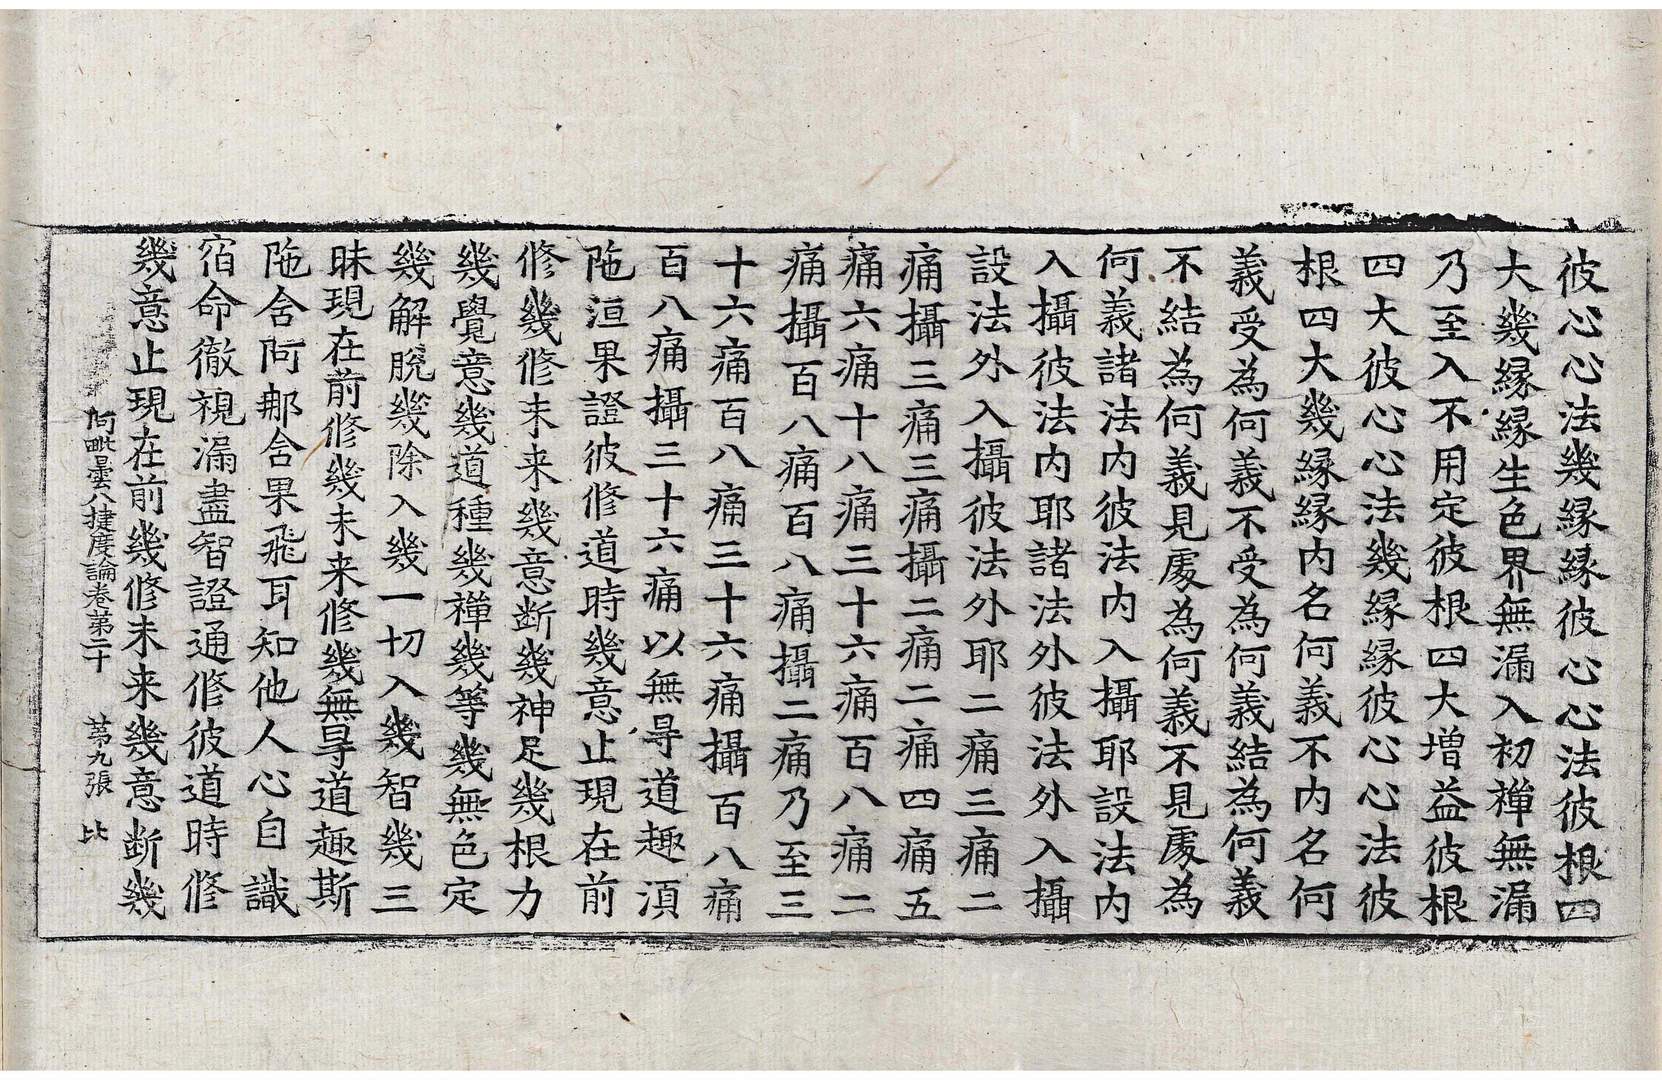 彼心心法幾緣緣彼心心法彼根四
大幾緣緣生色界無漏入初禪無漏
乃至入不用定彼根四大增益彼根
四大彼心心法幾緣緣彼心心法彼
根四大幾緣緣內名何義不內名何
義受為何義不受為何義結為何義
不結為何義見處為何義不見處為
何義諸法內彼法內入攝耶設法內
入攝彼法內耶諸法外彼法外入攝
設法外入攝彼法外耶二痛三痛二
痛攝三痛三痛攝二痛二痛四痛五
痛六痛十八痛三十六痛百八痛二
痛攝百八痛百八痛攝二痛乃至三
十六痛百八痛三十六痛攝百八痛
百八痛攝三十六痛以無㝵道趣湏
陁洹果證彼修道時幾意止現在前
修幾修未來幾意斷幾神足幾根力
幾覺意幾道種幾禪幾等幾無色定
幾解脫幾除入幾一切入幾智幾三
昧現在前修幾未來修幾無㝵道趣斯
陁含阿那含果飛耳知他人心自識
宿命徹視漏盡智證通修彼道時修
幾意止現在前幾修未來幾意斷幾
阿毗曇八揵度論卷第二十　第九張　比